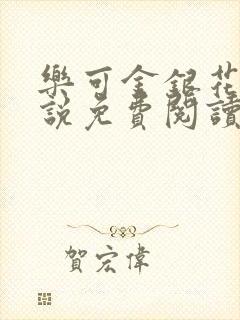 樂可金銀花
說免費閱讀
賀宏偉